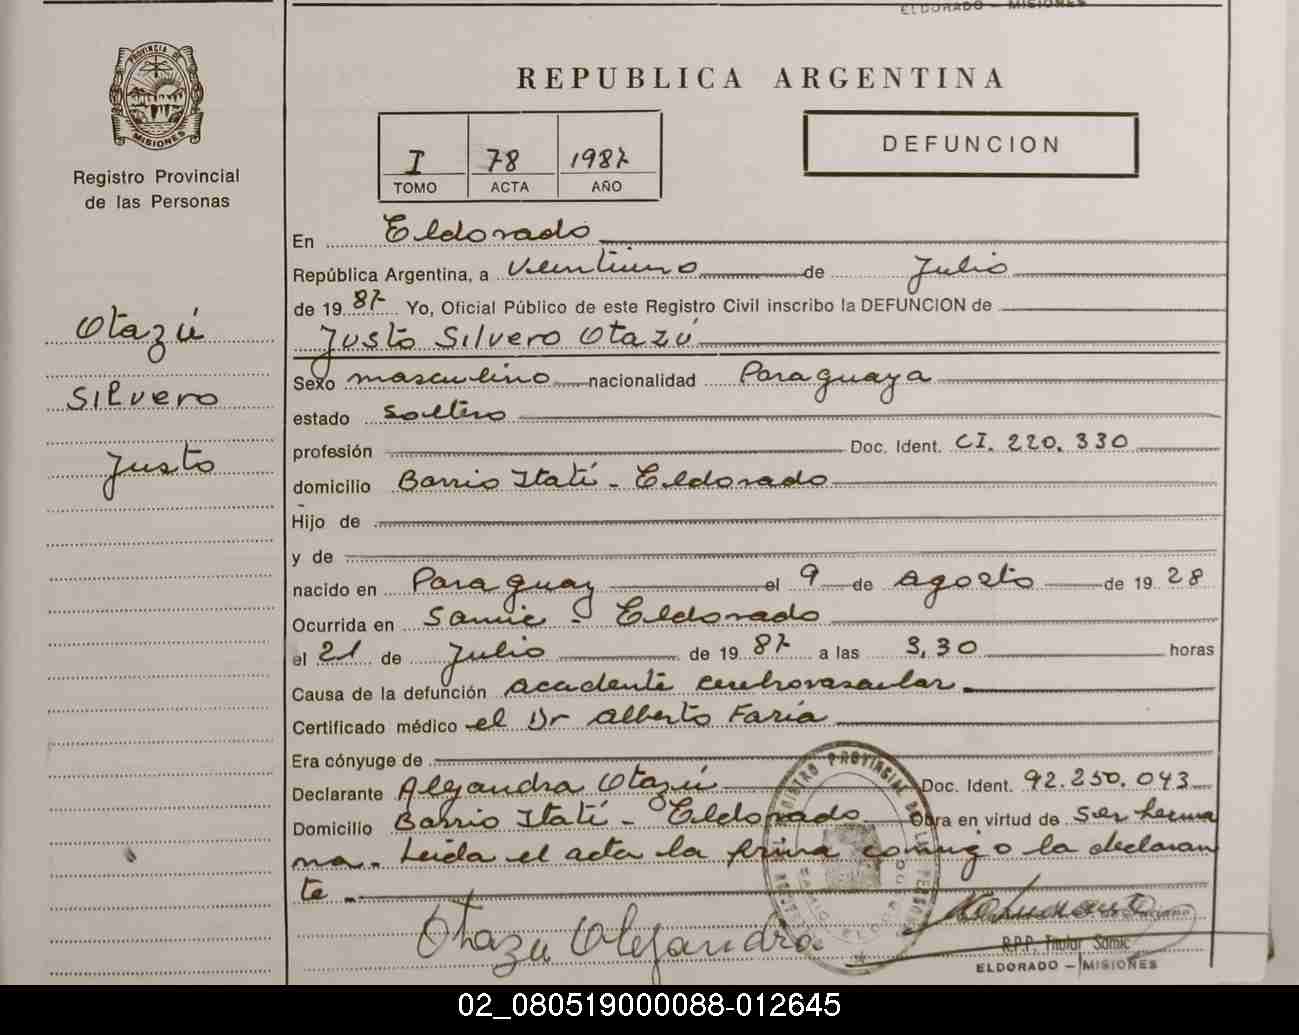 ELDORADO — MISIONES
PROVINCIA DE
MISIONES
Registro Provincial
de las Personas
Otazú
Silvero
Justo
REPUBLICA ARGENTINA
I 78 1987
TOMO ACTA AÑO
DEFUNCION
En Eldorado
República Argentina, a Veintiuno de Julio
de 1987 Yo, Oficial Público de este Registro Civil inscribo la DEFUNCION de
Justo Silvero Otazú
Sexo masculino nacionalidad Paraguaya
estado soltero
profesión Doc. Ident. CI. 220.330
domicilio Barrio Itatí - Eldorado
Hijo de
y de
nacido en Paraguay el 9 de Agosto de 1928
Ocurrida en Samic - Eldorado
el 21 de Julio de 1987 a las 3,30 horas
Causa de la defunción accidente cerebrovascular
Certificado médico el Dr Alberto Faria
Era cónyuge de
Declarante Alejandra Otazú Doc. Ident. 92.250.043
Domicilio Barrio Itatí - Eldorado Obra en virtud de ser herma
na. Leída el acta la firma conmigo la declaran
te
Otazu Alejandra
REGISTRO PROVINCIAL DE LAS PERSONAS
ELDORADO
R.P.P. Titular Samic
ELDORADO — MISIONES
02_080519000088-012645